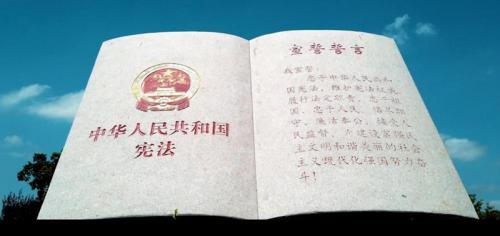 中华人民共和国
宪法
宪誓誓言
我宣誓：
忠于中华人民共和
国宪法，维护宪法权威，
履行法定职责，忠于祖
国、忠于人民，恪尽职
守、廉洁奉公，接受人
民监督，为建设富强民
主文明和谐美丽的社会
主义现代化强国努力奋
斗！